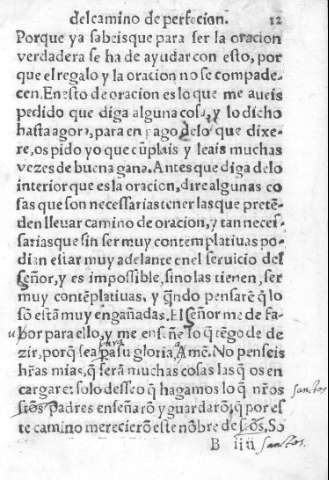 del camino de perfecion. 12
Porque ya sabeis que para ser la oracion
verdadera se ha de ayudar con esto, por
que el regalo y la oracion no se compade-
cen. En esto de oracion es lo que me aueis
pedido que diga alguna cosa, y lo dicho
hasta agora, para en pago delo que dixe-
re, os pido yo que cũplais y leais muchas
vezes de buena gana. Antes que diga delo
interior que es la oracion, dire algunas co
sas que son necessarias tener las que pretẽ-
den lleuar camino de oracion, y tan neces-
sarias que sin ser muy contemplatiuas po-
dran estar muy adelante en el seruicio del
señor, y es impossible, sino las tienen, ser
muy contẽplatiuas, y q̃ndo pensarẽ q̃ lo
sõ estã muy engañadas. El señor me de fa-
uor para ello, y me enseñe lo q̃ tẽgo de de
zir, porq̃ sea para su gloria, Amẽ. No penseis
hr̃as mias, q̃ serã muchas cosas las q̃ os en
cargare: solo desseo q̃ hagamos lo q̃ nr̃os
stõs Padres enseñarõ y guardarõ, q̃ por es
santos
te camino merecierõ este nõbre de stõs, So
B iiii santos.